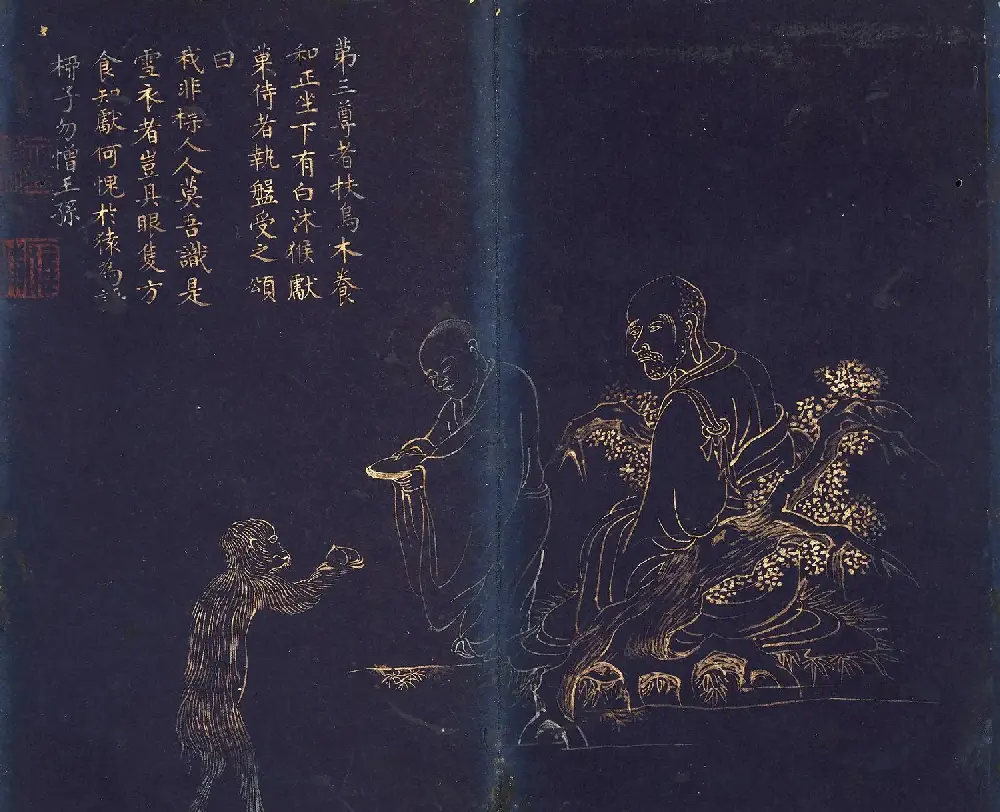 第三尊者扶烏木養
和正坐下有白沐猴獻
菓侍者執盤受之頌
曰
我非標人人莫吾識是
雪衣者豈具眼隻方
食知獻何愧於猿為語
柳子勿憎王孫